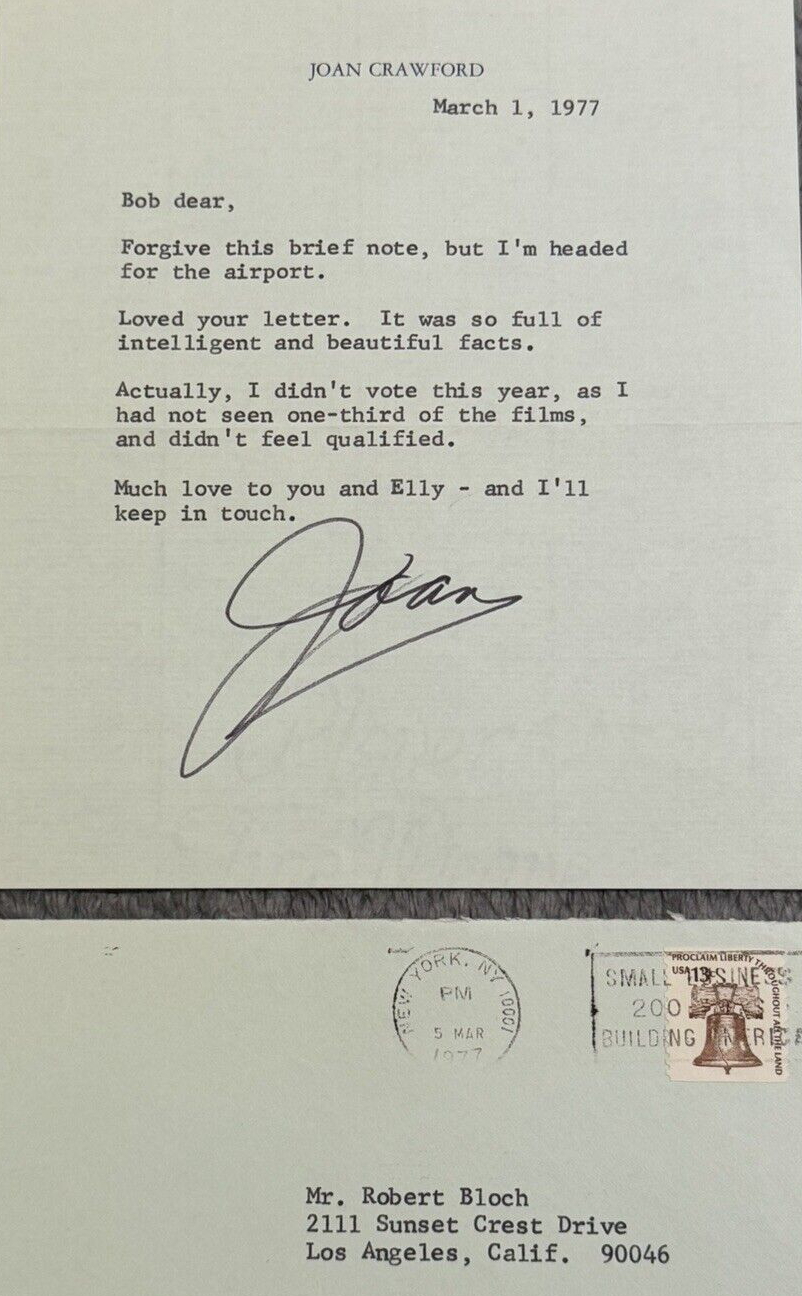 JOAN CRAWFORD
March 1, 1977
Bob dear,
Forgive this brief note, but I'm headed
for the airport.
Loved your letter.  It was so full of
intelligent and beautiful facts.
Actually, I didn't vote this year, as I
had not seen one-third of the films,
and didn't feel qualified.
Much love to you and Elly - and I'll
keep in touch.
Joan
YORK, NY
PM
5 MAR
1977
PROCLAIM LIBERTY THROUGHOUT ALL THE LAND
USA 13c
SMALL
200
BUILDING
Mr. Robert Bloch
2111 Sunset Crest Drive
Los Angeles, Calif.  90046